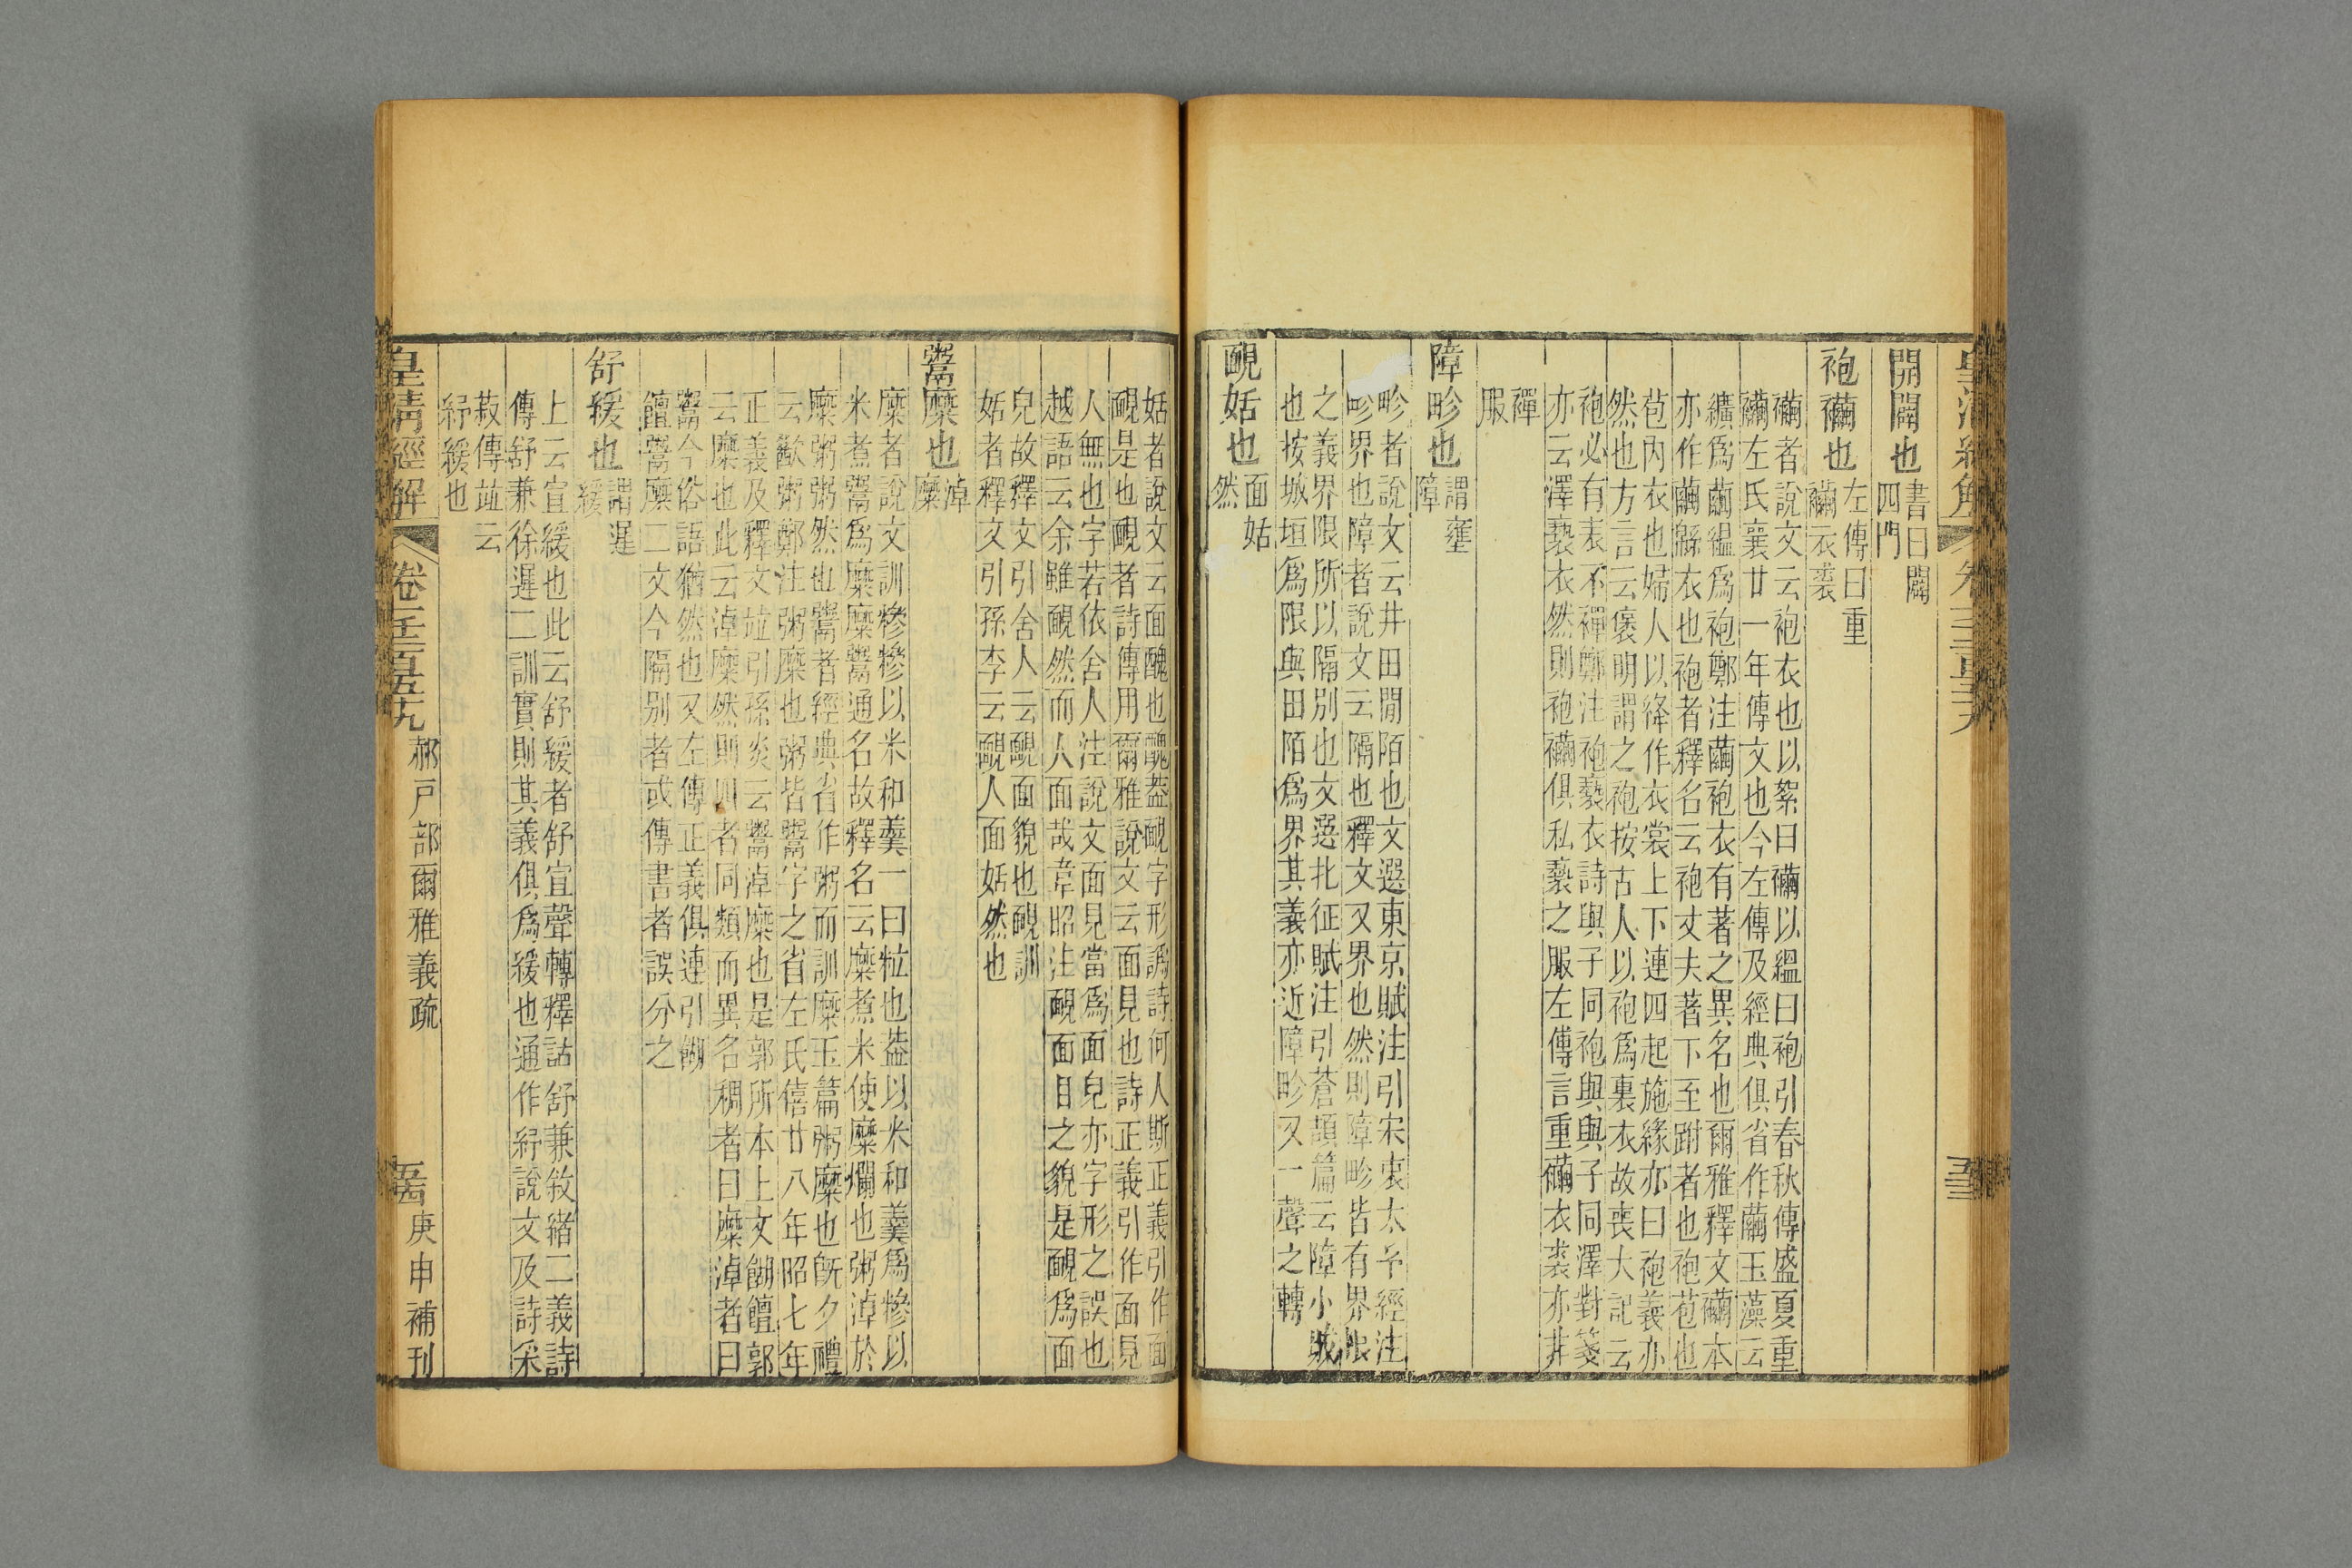 皇清經解
開闢也書曰闢
四門
袍襺也左傳曰重
襺衣裘
襺者說文云袍衣也以絮曰襺以緼曰袍引春秋傳盛夏重
襺左氏襄廿一年傳文也今左傳及經典俱省作繭玉藻云
纊爲繭緼爲袍鄭注繭袍衣有著之異名也爾雅釋文襺本
亦作繭緜衣也袍者釋名云袍丈夫著下至跗者也袍苞也
苞內衣也婦人以絳作衣裳上下連四起施緣亦曰袍義亦
然也方言云褒明謂之袍按古人以袍爲裏衣故喪大記云
袍必有表不襌鄭注袍褻衣詩與子同袍與與子同澤對箋
亦云澤褻衣然則袍襺俱私褻之服左傳言重襺衣裘亦非
襌
服
障畛也謂壅
障
畛者說文云井田閒陌也文選東京賦注引宋衷太予經注
畛界也障者說文云隔也釋文又界也然則障畛皆有界限
之義界限所以隔別也文選北征賦注引蒼頡篇云障小城
也按城垣爲限與田陌爲界其義亦近障畛又一聲之轉
靦姡也面姑
然
姡者說文云面醜也醜葢靦字形譌詩何人斯正義引作面
靦是也靦者詩傳用爾雅說文云面見也詩正義引作面見
人無也字若依舍人注說文面見當爲面皃亦字形之誤也
越語云余雖靦然而人面哉韋昭注靦面目之貌是靦爲面
皃故釋文引舍人云靦面貌也靦訓
姡者釋文引孫李云靦人面姡然也
鬻糜也淖
糜
糜者說文訓糝糝以米和羹一曰粒也葢以米和羹爲糝以
米煮鬻爲糜糜鬻通名故釋名云糜煮米使糜爛也粥淖於
糜粥粥然也鬻者經典省作粥而訓糜玉篇粥糜也旣夕禮
云歠粥鄭注粥糜也粥皆鬻字之省左氏僖廿八年昭七年
正義及釋文竝引孫炎云鬻淖糜也是郭所本上文餬饘郭
云糜也此云淖糜然則四者同類而異名稠者曰糜淖者曰
鬻今俗語猶然也又左傳正義俱連引餬
饘鬻糜二文今隔別者或傳書者誤分之
舒緩也謂遲
緩
上云宣緩也此云舒緩者舒宣聲轉釋詁舒兼敘緒二義詩
傳舒兼徐遲二訓實則其義俱爲緩也通作紓說文及詩采
菽傳竝云
紓緩也
皇清經解 卷千二百五十九 郝戶部爾雅義疏 庚申補刊